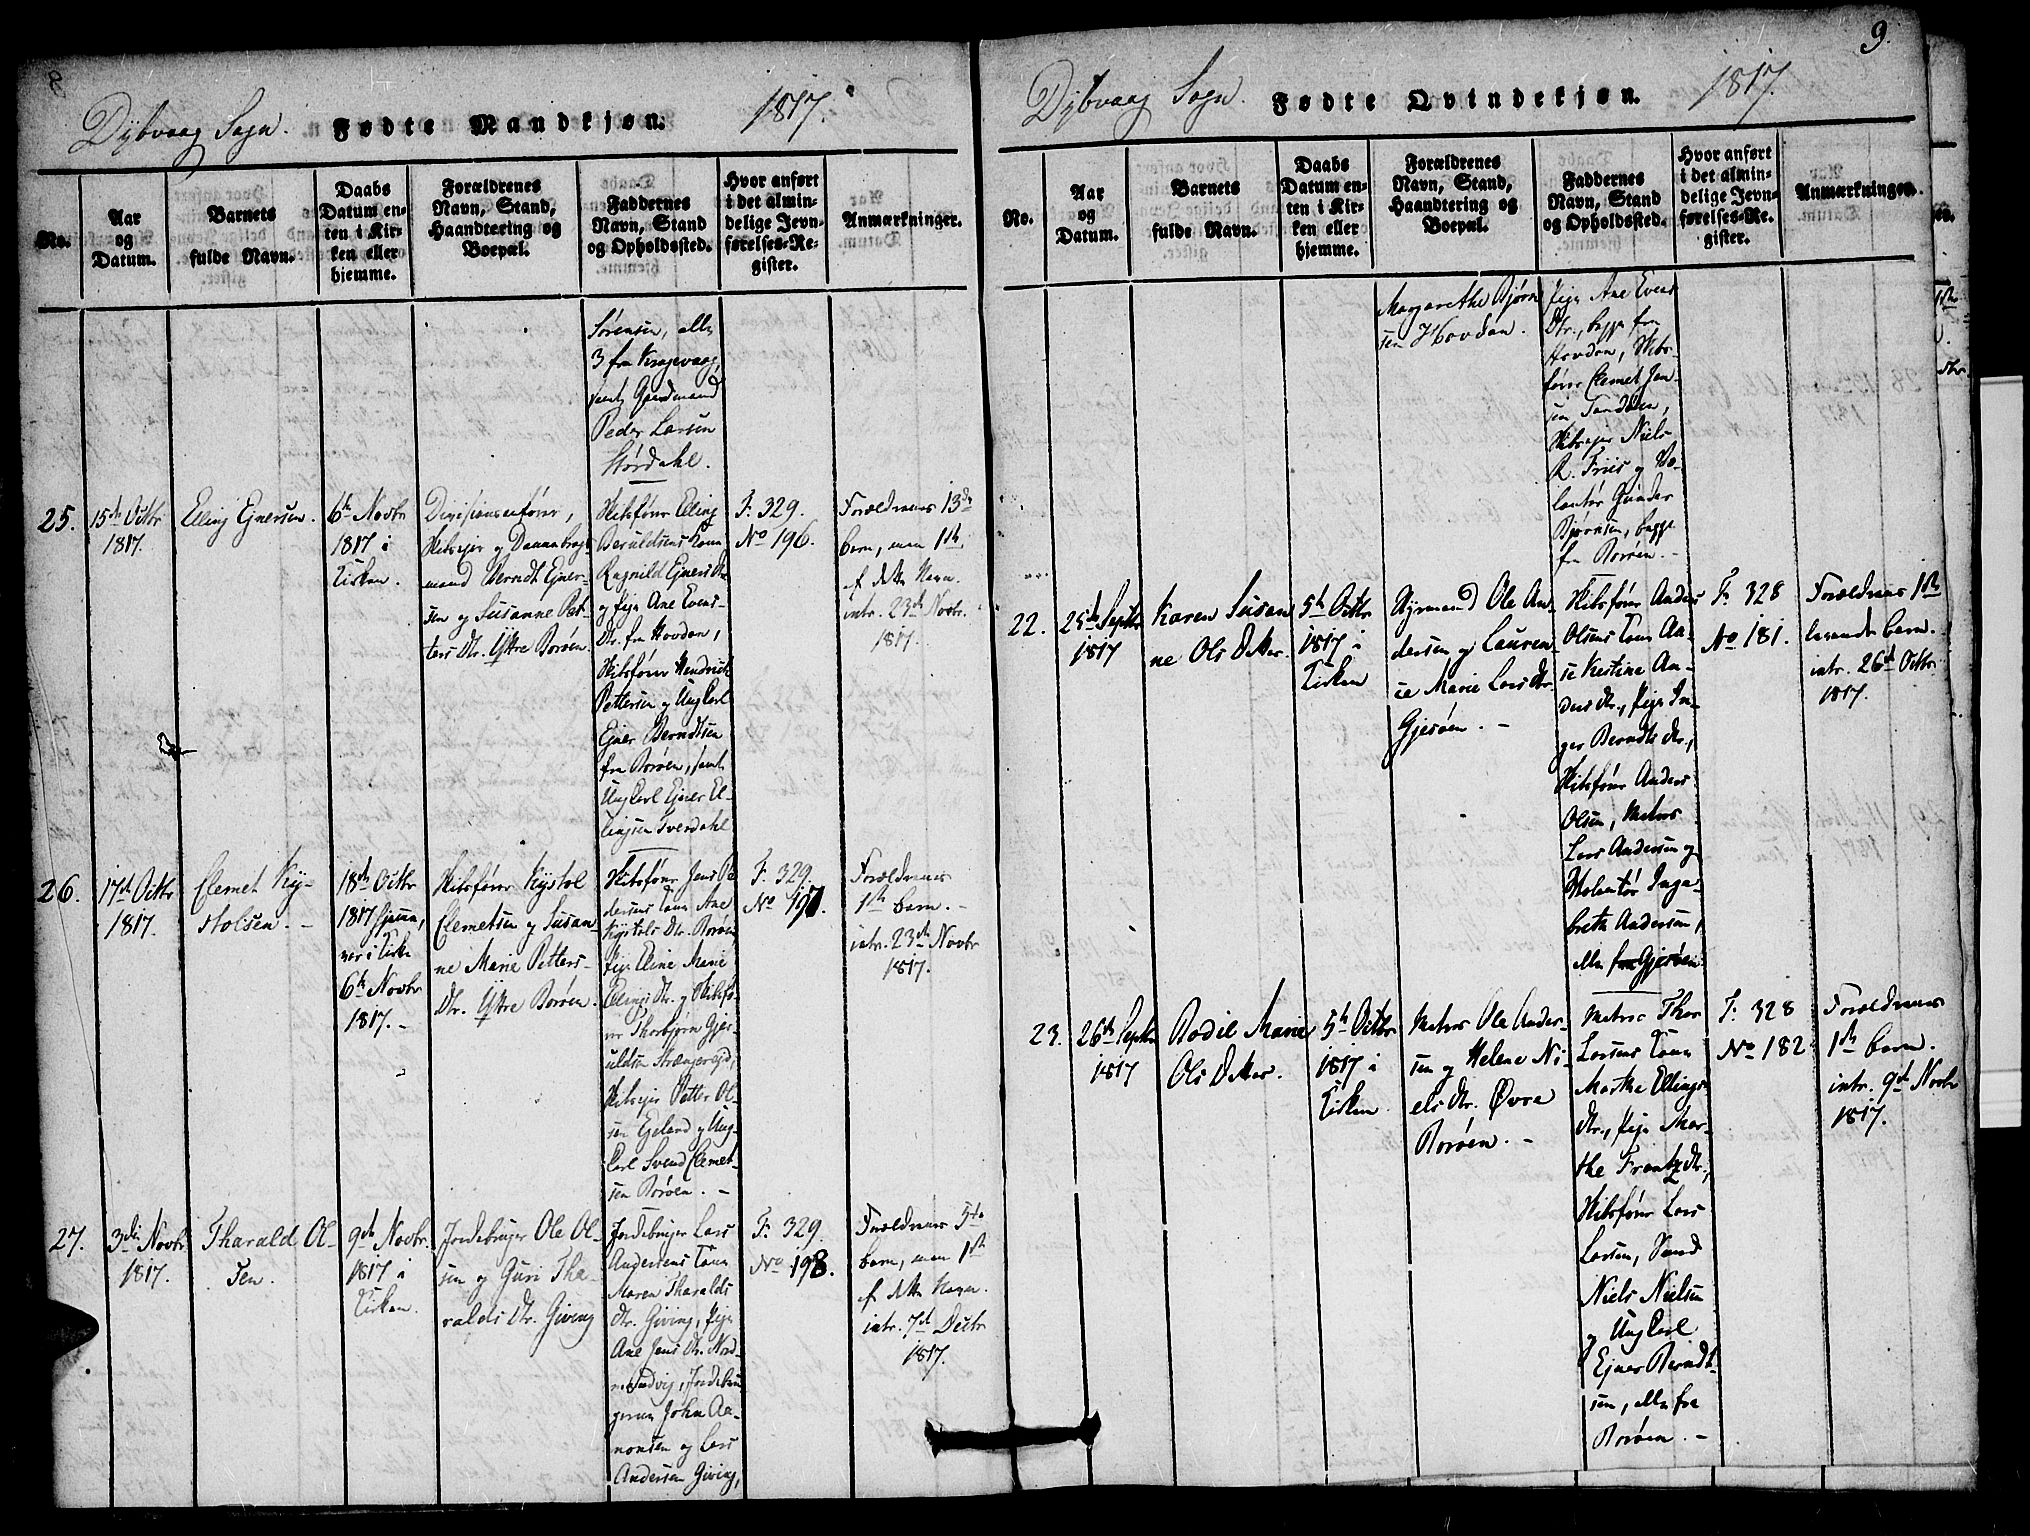 8
Dybvaag Sogn. Fødte Mandkjøn. 1817.
No.
Aar
og
Datum.
Barnets
fulde Navn.
Daabs
Datum en-
ten i Kir-
ken eller
hjemme.
Forældrenes
Navn, Stand,
Haandtering og
Boepæl.
Faddernes
Navn, Stand
og Opholdssted.
Hvor anført
i det almin-
delige Jevn-
førelses-Re-
gister.
Anmærkninger.
Sørensen, alle
3 fra Kragevaag,
samt Gaardmand
Peder Larsen
Størdahl.
25.
15de Octbr
1817.
Elling Ejnersen.
6te Novbr
1817 i
Kirken.
Divisionsanfører,
Skibsejer og Dannebrogs
mand Berndt Ejner-
sen og Susanne Pet-
ters Dtr. Yttre Borøen.
Skibsfører Elling
Beruldsens Kone
Ragnild Ejners Dtr.
og Pige Ane Evens-
Dtr. fra Hovdan,
Skibsfører Hendrich
Pettersen og Ungkarl
Ejner Berndtsen
fra Borøen, samt
Ungkarl Ejner El-
lingsen Sverdahl.
F. 329.
No 196.
Forældrenes 13de
barn, men 1ste
af dette Navn.
intr. 23de Novbr.
1817.
26.
17de Octbr
1817.
Clemet Ky-
stolsen. -
18de Octbr
1817 hjemme,
var i Kirke
6te Novbr
1817. -
Skibsfører Kystol
Clemetsen og Susan-
ne Marie Petters-
Dtr. Yttre Borøen.
Skibsfører Jens Pe-
dersens Kone Ane
Kystols Dtr. Borøen,
Pige Eline Marie
Ellings Dtr. og Skibsfø-
rer Thorbjørn Gjer-
uldsen Strængereid,
Skibsejer Petter Ol-
sen Ejeland og Ung-
karl Svend Clemet-
sen Borøen. -
F. 329.
No 197.
Forældrenes
1ste barn. -
intr. 23de Novbr
1817.
27.
3die Novbr
1817.
Tharald Ol-
sen.
9de Novbr.
1817 i
Kirken.
Jordebruger Ole Ol-
sen og Guri Tha-
ralds Dtr. Giving
Jordebruger Lars
Andersens Kone
Maren Tharalds
Dtr. Giving, Pige
Ane Jens Dtr. Nord-
re Sudvig, Jordebru-
gerne John Aa-
nonsen og Lars
Andersen Giving,
F. 329.
No 198.
Forældrenes 5te
barn, men 1ste
af dette Navn.
intr. 7de Decbr
1817.
9.
Dybvaag Sogn. Fødte Qvindekjøn. 1817.
No.
Aar
og
Datum.
Barnets
fulde Navn.
Daabs
Datum en-
ten i Kir-
ken eller
hjemme.
Forældrenes
Navn, Stand,
Haandtering og
Boepæl.
Faddernes
Navn, Stand
og Opholdssted.
Hvor anført
i det almin-
delige Jevn-
førelses-Re-
gister.
Anmærkninger.
Margarethe Bjørn
sen Hovdan.
Pige Ane Evens
Dtr., begge fra
Hovdan, Skibs-
fører Clemet Jen-
sen
Skibsejer Niels
R. Friis og Vo-
lontør Gunder
Bjørnsen, begge
fra Borøen. -
22.
25de Septbr
1817
Karen Susan
ne Ols Datter.
5te Octbr
1817 i
Kirken
Styrmand Ole An
dersen og Lauren-
se Marie Lars Dtr.
Gjesøen. -
Skibsfører Anders
Olsens Kone Aa-
se Kirstine An-
ders Dtr., Pige In-
ger Berndts Dtr.,
Skibsfører Anders
Olsen, Matros
Lars Andersen og
Volontør Inge-
breth Andersen,
alle fra Gjesøen.
F. 328
No 181.
Forældrenes 1ste
levende barn.
intr. 26de Octbr
1817.
23.
26de Septbr
1817
Bodil Marie
Ols Datter.
5te Octbr
1817 i
Kirken.
Matros Ole Ander-
sen og Helene Ni-
els Dtr. Øvre
Borøen. -
Matros Thor
Larsens Kone
Marthe Ellings
Dtr., Pige Mar-
the Frantz Dtr.,
Skibsfører Lars
Larsen,
Niels Nielsen
og Ungkarl
Ejner Berndt-
sen, alle fra
Borøen. -
F. 328
No 182
Forældrenes
1ste barn.
intr. 9de Novbr
1817.